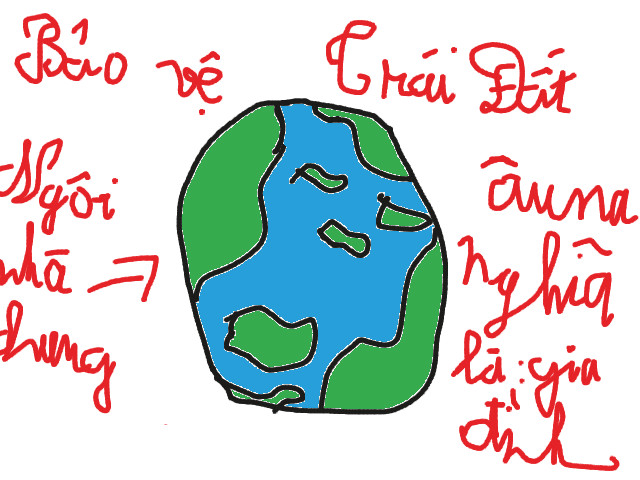 Bảo vệ Trái Đất
Ngôi
nhà
chung
âuna
nghĩa
là: gia
đình